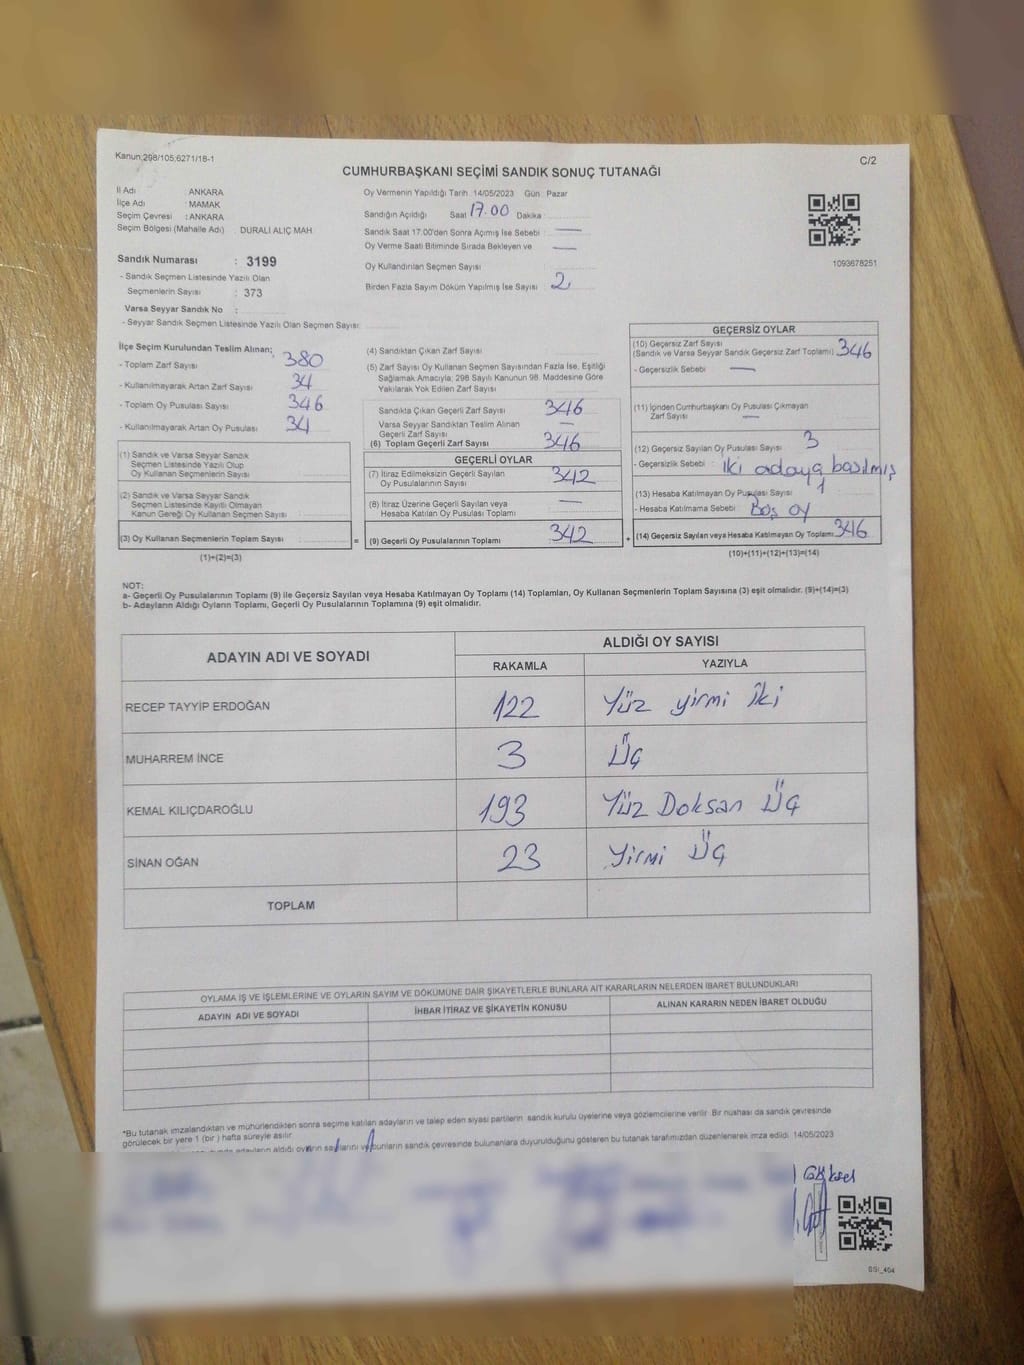 Kanun:298/105;6271/18-1
C/2
CUMHURBAŞKANI SEÇİMİ SANDIK SONUÇ TUTANAĞI
İl Adı : ANKARA
İlçe Adı : MAMAK
Seçim Çevresi : ANKARA
Seçim Bölgesi (Mahalle Adı) : DURALİ ALIÇ MAH
Sandık Numarası : 3199
- Sandık Seçmen Listesinde Yazılı Olan
Seçmenlerin Sayısı : 373
Varsa Seyyar Sandık No :
- Seyyar Sandık Seçmen Listesinde Yazılı Olan Seçmen Sayısı:
Oy Vermenin Yapıldığı Tarih 14/05/2023 Gün Pazar
Sandığın Açıldığı Saat 17.00 Dakika :
Sandık Saat 17:00'den Sonra Açımış İse Sebebi : —
Oy Verme Saati Bitiminde Sırada Bekleyen ve —
Oy Kullandırılan Seçmen Sayısı :
Birden Fazla Sayım Döküm Yapılmış İse Sayısı : 2
1093678251
İlçe Seçim Kurulundan Teslim Alınan;
- Toplam Zarf Sayısı : 380
- Kullanılmayarak Artan Zarf Sayısı : 34
- Toplam Oy Pusulası Sayısı : 346
- Kullanılmayarak Artan Oy Pusulası : 34
(1) Sandık ve Varsa Seyyar Sandık
Seçmen Listesinde Yazılı Olup
Oy Kullanan Seçmenlerin Sayısı :
(2) Sandık ve Varsa Seyyar Sandık
Seçmen Listesinde Kayıtlı Olmayan
Kanun Gereği Oy Kullanan Seçmen Sayısı :
(3) Oy Kullanan Seçmenlerin Toplam Sayısı :
(1)+(2)=(3)
(4) Sandıktan Çıkan Zarf Sayısı :
(5) Zarf Sayısı Oy Kullanan Seçmen Sayısından Fazla İse, Eşitliği
Sağlamak Amacıyla; 298 Sayılı Kanunun 98. Maddesine Göre
Yakılarak Yok Edilen Zarf Sayısı :
Sandıkta Çıkan Geçerli Zarf Sayısı : 346
Varsa Seyyar Sandıktan Teslim Alınan
Geçerli Zarf Sayısı : —
(6) Toplam Geçerli Zarf Sayısı : 346
GEÇERLİ OYLAR
(7) İtiraz Edilmeksizin Geçerli Sayılan
Oy Pusulalarının Sayısı : 342
(8) İtiraz Üzerine Geçerli Sayılan veya
Hesaba Katılan Oy Pusulası Toplamı : —
= (9) Geçerli Oy Pusulalarının Toplamı : 342 +
GEÇERSİZ OYLAR
(10) Geçersiz Zarf Sayısı
(Sandık ve Varsa Seyyar Sandık Geçersiz Zarf Toplamı) 346
- Geçersizlik Sebebi : —
(11) İçinden Cumhurbaşkanı Oy Pusulası Çıkmayan
Zarf Sayısı : —
(12) Geçersiz Sayılan Oy Pusulası Sayısı : 3
- Geçersizlik Sebebi : İki adaya basılmış
(13) Hesaba Katılmayan Oy Pusulası Sayısı : 1
- Hesaba Katılmama Sebebi : Boş oy
(14) Geçersiz Sayılan veya Hesaba Katılmayan Oy Toplamı : 346
(10)+(11)+(12)+(13)=(14)
NOT:
a- Geçerli Oy Pusulalarının Toplamı (9) ile Geçersiz Sayılan veya Hesaba Katılmayan Oy Toplamı (14) Toplamları, Oy Kullanan Seçmenlerin Toplam Sayısına (3) eşit olmalıdır. (9)+(14)=(3)
b- Adayların Aldığı Oyların Toplamı, Geçerli Oy Pusulalarının Toplamına (9) eşit olmalıdır.
ADAYIN ADI VE SOYADI
ALDIĞI OY SAYISI
RAKAMLA YAZIYLA
RECEP TAYYİP ERDOĞAN 122 Yüz yirmi iki
MUHARREM İNCE 3 Üç
KEMAL KILIÇDAROĞLU 193 Yüz Doksan Üç
SİNAN OĞAN 23 Yirmi Üç
TOPLAM
OYLAMA İŞ VE İŞLEMLERİNE VE OYLARIN SAYIM VE DÖKÜMÜNE DAİR ŞİKAYETLERLE BUNLARA AİT KARARLARIN NELERDEN İBARET BULUNDUKLARI
ADAYIN ADI VE SOYADI İHBAR İTİRAZ VE ŞİKAYETİN KONUSU ALINAN KARARIN NEDEN İBARET OLDUĞU
*Bu tutanak imzalandıktan ve mühürlendikten sonra seçime katılan adayların ve talep eden siyasi partilerin sandık kurulu üyelerine veya gözlemcilerine verilir. Bir nüshası da sandık çevresinde
görülecek bir yere 1 (bir) hafta süreyle asılır.
adayların aldığı oyların sayılarını ve bunların sandık çevresinde bulunanlara duyurulduğunu gösteren bu tutanak tarafımızdan düzenlenerek imza edildi. 14/05/2023
Göksel
BSI_404